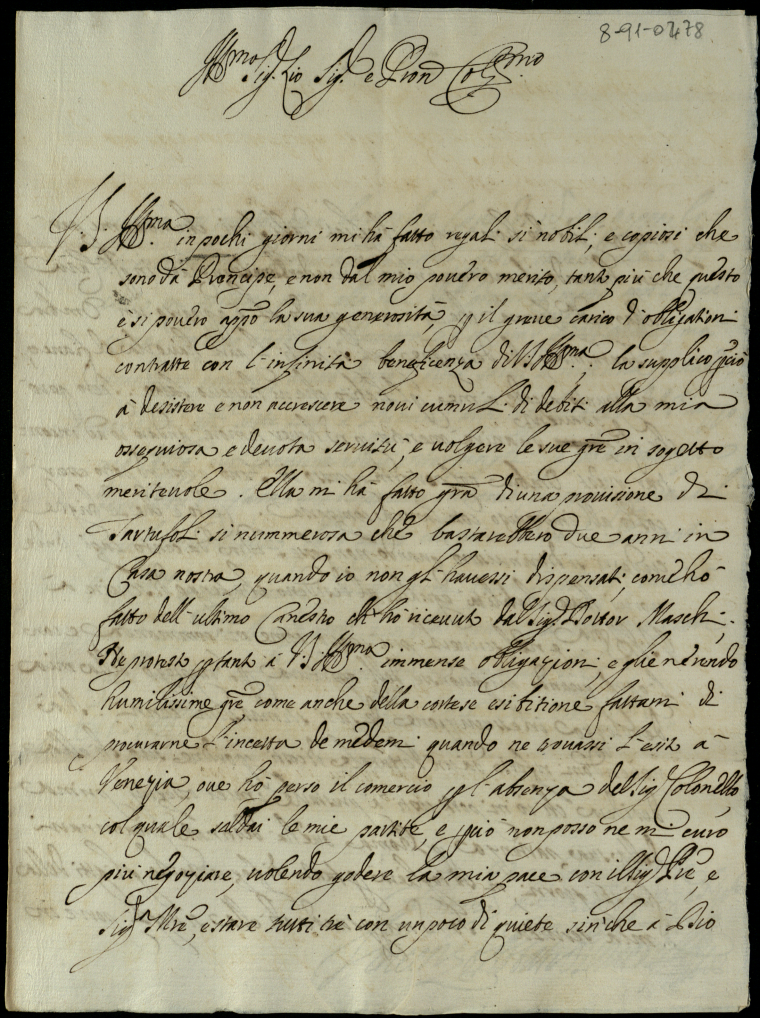 8-91-0278
Ill.mo Sig. Zio Sig. e Pron Col.mo
V. S. Ill.ma in pochi giorni mi hà fatto regali si nobili, e copiosi che
sono dà Prencipe, e non dal mio povero merito, tanto più che questo
è si povero app.o la sua generosità, p il greve carico d'obligationi
contratte con l'infinita beneficenza di V. S. Ill.ma; la supplico pciò
à desistere e non accrescere novi cumuli di debiti alla mia
ossequiosa e devota servitù, e volgere le sue gre in sogetto
meritevole. Ella mi hà fatto gra di una provisione di
Tartufoli si nummerosa che bastarebbero due anni in
Casa nostra, quando io non gli havessi dispensati, come hò
fatto dell'ultimo Canestro ch'hò ricevuto dal Sig. Dottor Maschi.
Ne protesto ptanto à V. S. Ill.ma immense obligazioni, e glie ne rendo
humilissime gre come anche della cortese esibitione fattami di
procurarne l'incetta de medemi quando ne trovassi l'esito à
Venezia, ove hò perso il comercio p l'absenza del Sig. Colonello,
col quale saldai le mie partite, e pciò non posso ne mi curo
più negoziare, volendo godere la mia pace con il Sig. Pre, e
Sig.a Mre, e stare tutti trè con un poco di quiete sin che à Dio